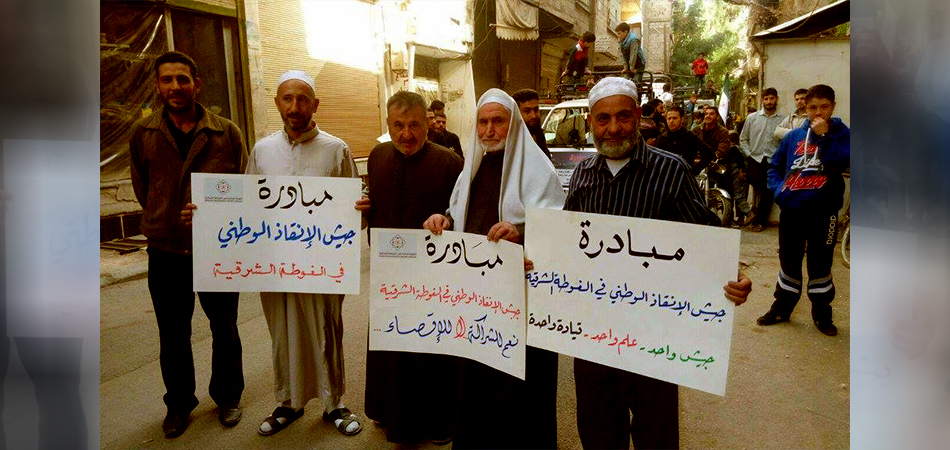 مبادرة
جيش الإنقاذ الوطني
في الغوطة الشرقية
مبادرة
جيش الإنقاذ الوطني في الغوطة الشرقية
نعم للشراكة لا للإقصاء ...
مبادرة
جيش الإنقاذ الوطني في الغوطة الشرقية
جيش واحد - علم واحد - قيادة واحدة